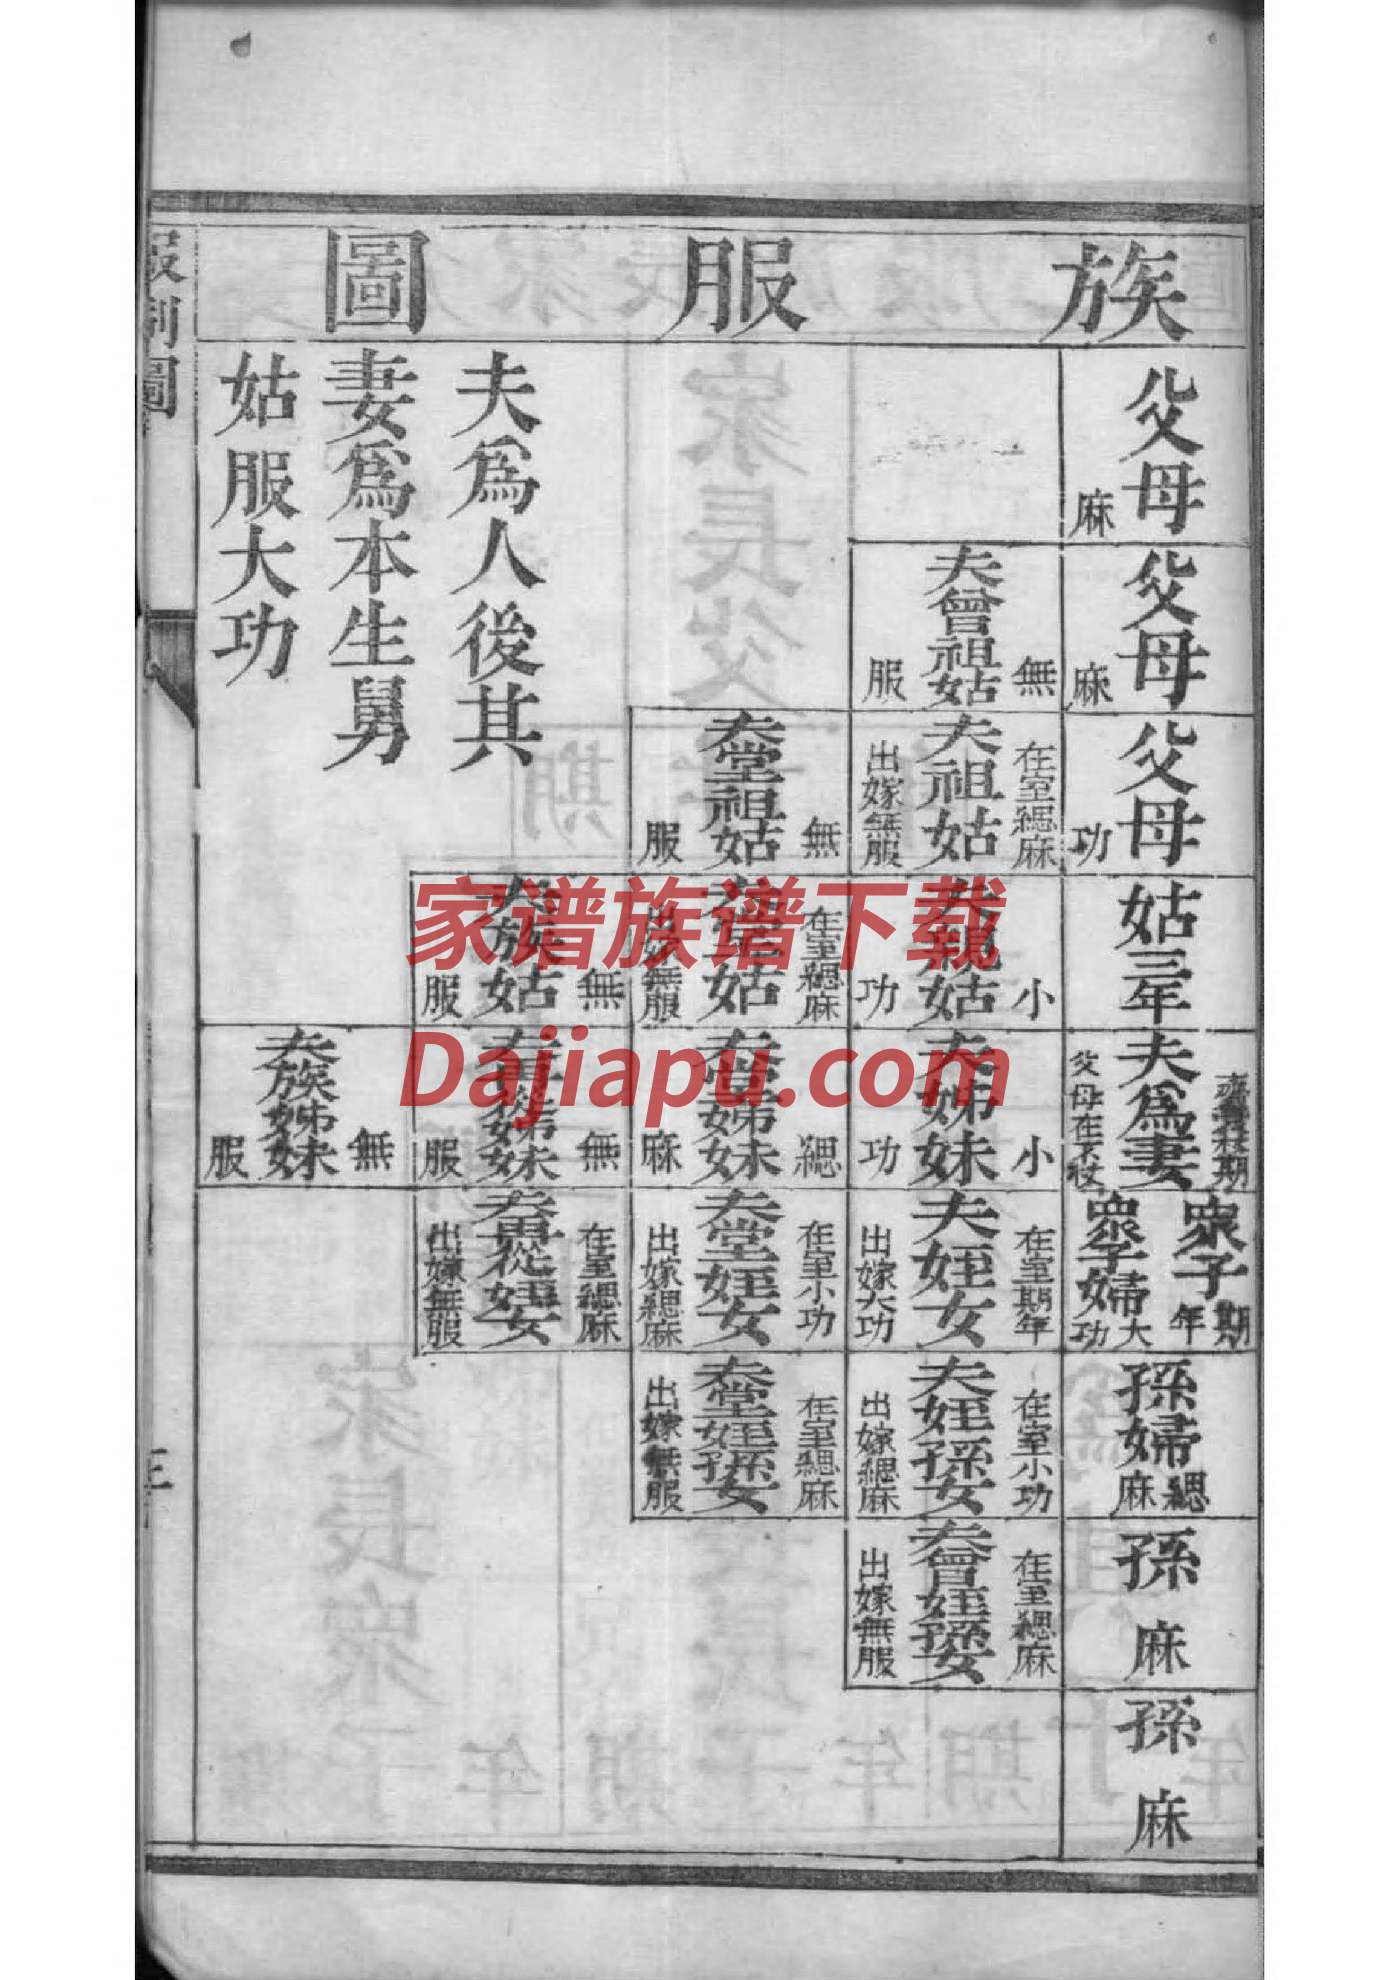 族服圖
父母
麻
父母
麻
父母
功
姑三年
夫為妻
父母在不杖
眾子
期年
眾子婦
大功
孫婦
緦麻
孫
麻
孫
麻
夫曾祖姑
無服
夫祖姑
在室緦麻
出嫁無服
夫親姑
小功
夫姊妹
小功
夫姪女
在室期年
出嫁大功
夫姪孫女
在室小功
出嫁緦麻
夫曾姪孫女
在室緦麻
出嫁無服
夫堂祖姑
無服
夫堂姑
在室緦麻
出嫁無服
夫堂姊妹
緦麻
夫堂姪女
在室小功
出嫁緦麻
夫堂姪孫女
在室緦麻
出嫁無服
夫族姑
無服
夫再從姊妹
無服
夫再從姪女
在室緦麻
出嫁無服
夫族姊妹
無服
夫為人後其
妻為本生舅
姑服大功
服制圖
三
家谱族谱下载
Dajiapu.com